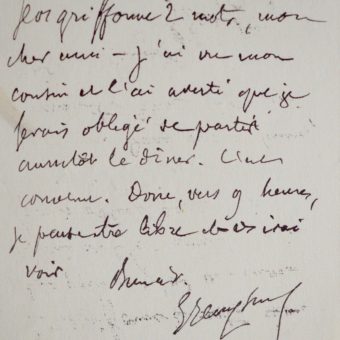 Je griffonne 2 mots, mon
cher ami – j'ai vu mon
cousin et l'ai averti que je
serais obligé de partir
aussitôt le dîner. C'est
convenu. Donc, vers 9 heures,
je peux être libre et vs irai
voir